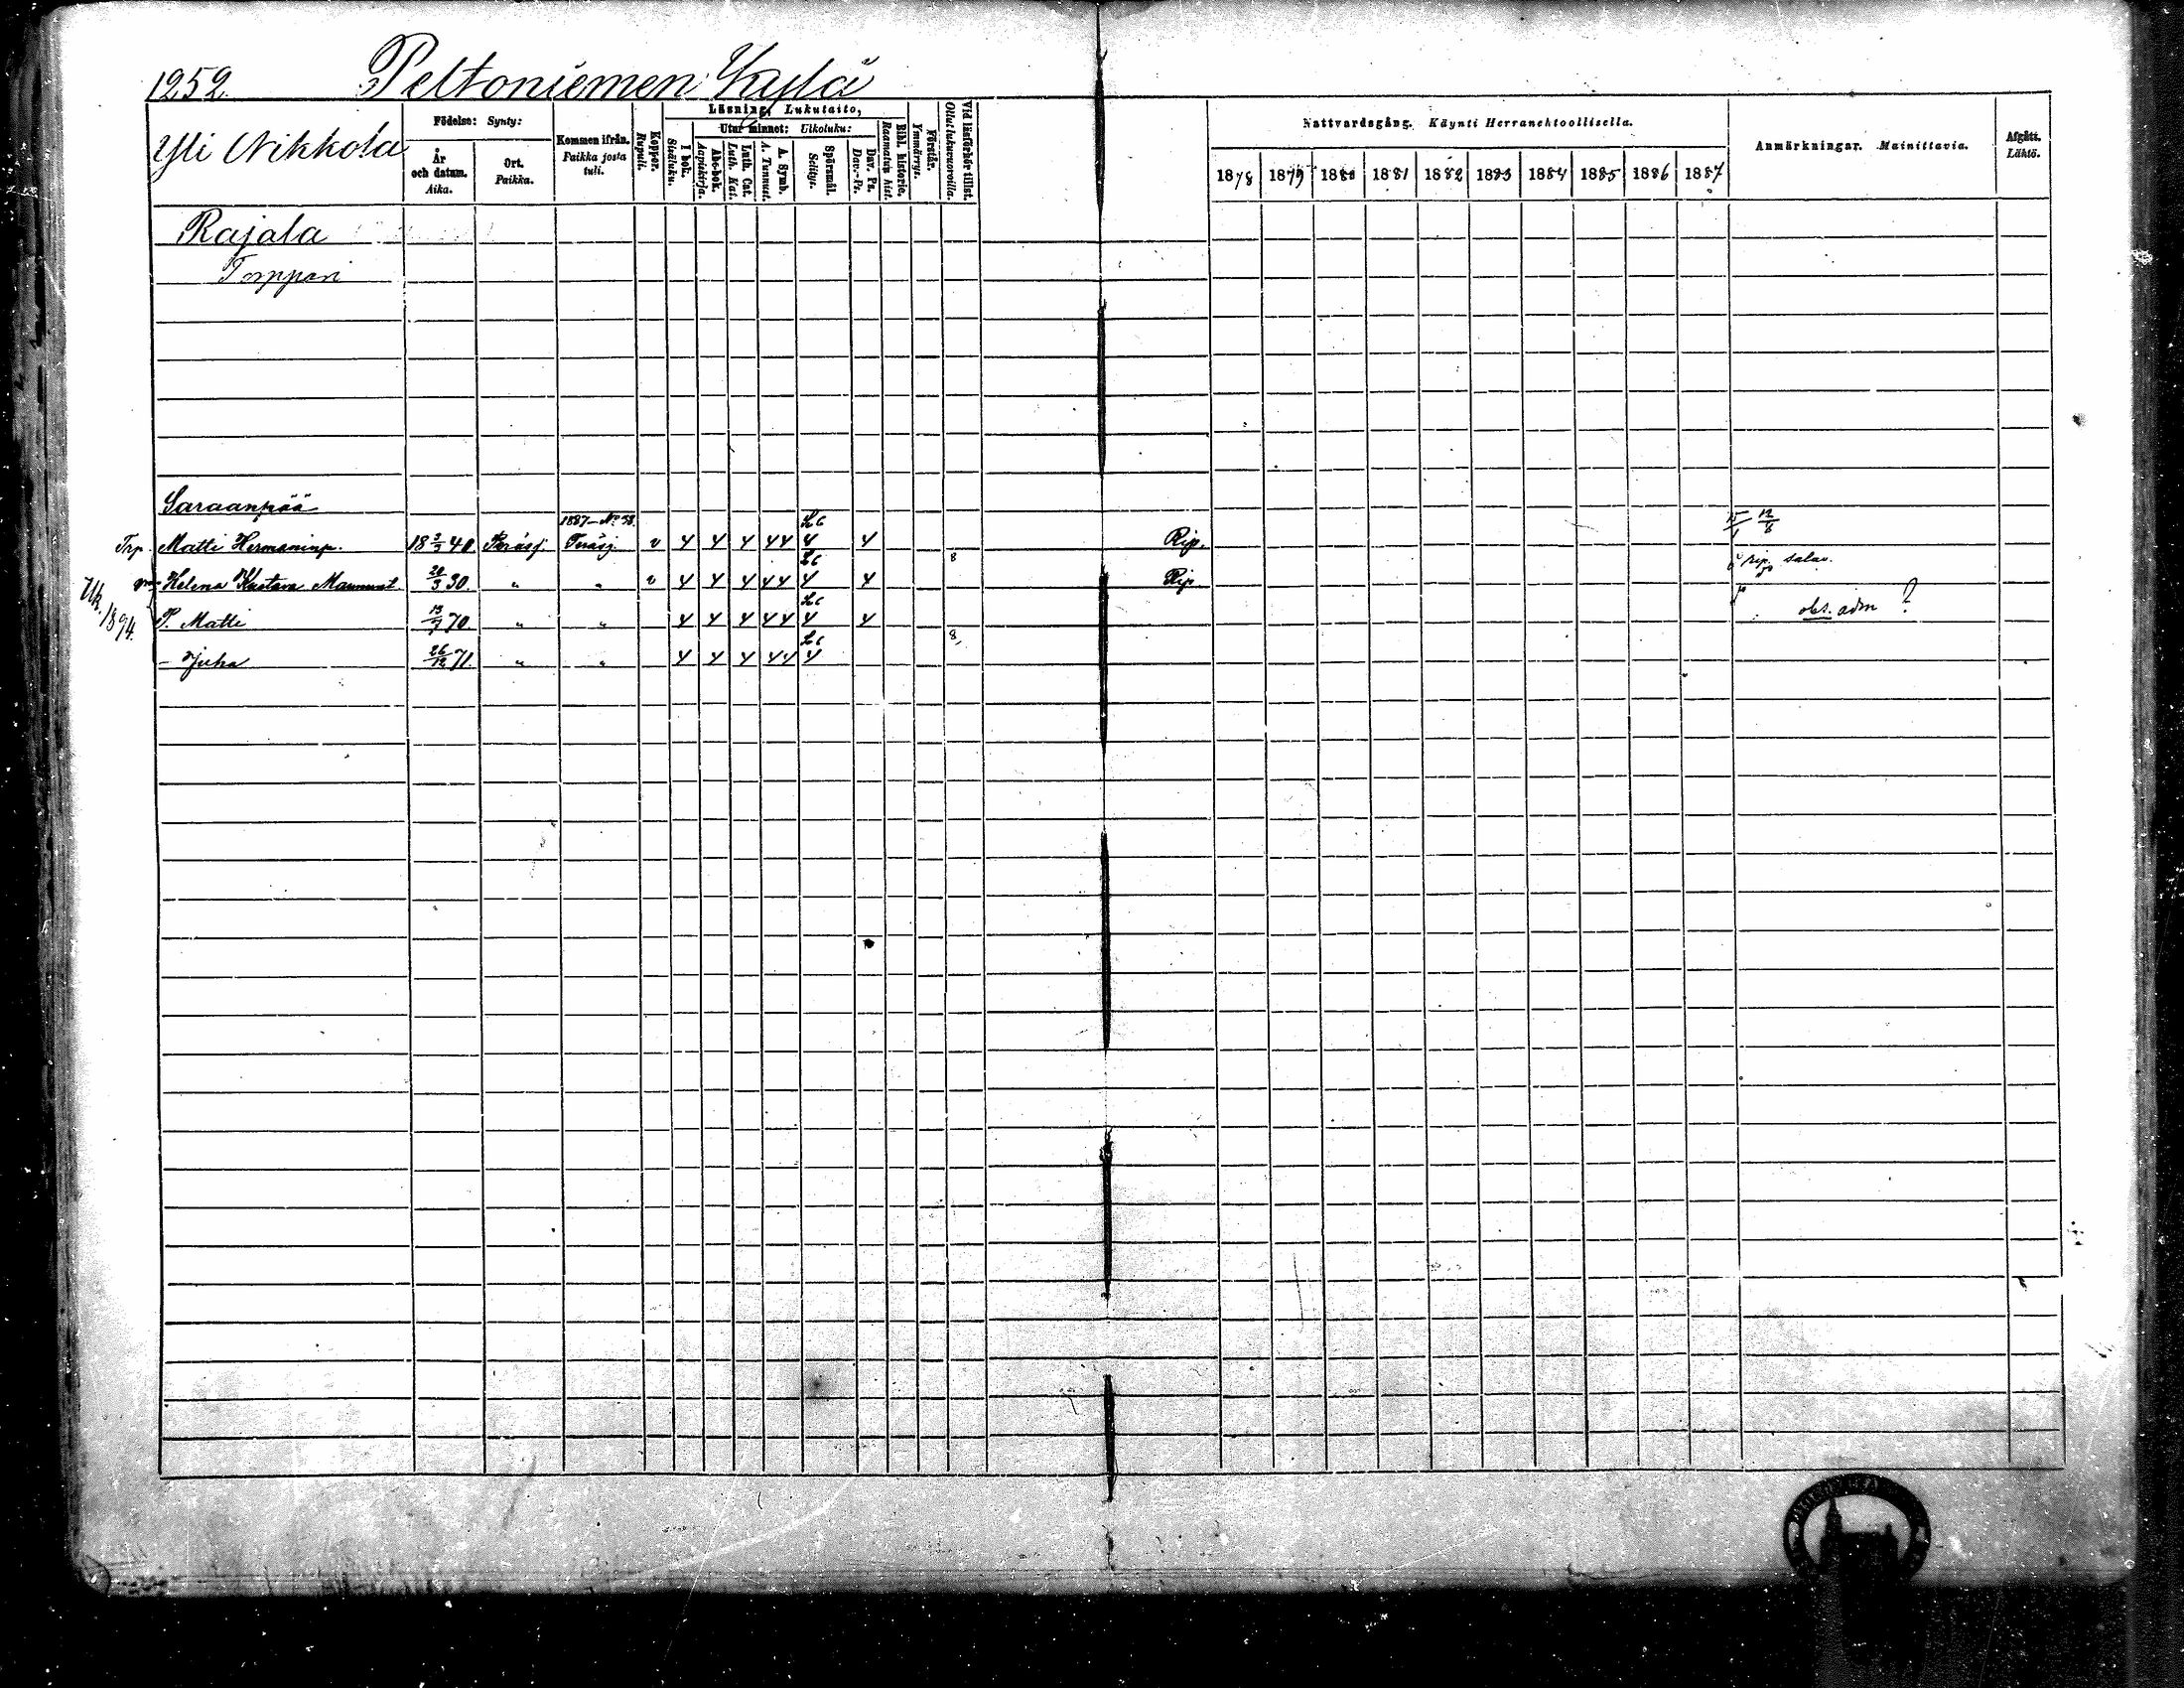 1252. Peltoniemen Kylä
Yli Nikkola
Födelse: Synty:
År och datum. Aika.
Ort. Paikka.
Kommen ifrån. Paikka josta tuli.
Koppor. Rupuli.
Läsning, Lukutaito,
I bok. Sisäluku.
Utur minnet: Ulkoluku:
Abc-bok. Aapiskirja.
Luth. Cat. Luth. Kat.
A. Symb. A. Tunnust.
Spörsmål. Selitys.
Dav. Ps. Dav.-Ps.
Bibl. historie. Raamatun hist.
Förstår. Ymmärrys.
Vid läsförhör tillst. Ollut lukuvuoroilla.
Nattvardsgång. Käynti Herranehtoollisella.
1878 1879 1880 1881 1882 1883 1884 1885 1886 1887
Anmärkningar. Mainittavia.
Afgått. Lähtö.
Rajala
Torppari
Saraanpää
1887 – No 58.
Trp. Matti Hermaninp. 18 40 Peräsj. Peräsj. v 4 4 4 44 4 4 Rip.
8 rip. salav.
Helena Kustava 20/3 30. " " v 4 4 4 44 4 4 Rip
Uk. 1894.
P. Matti 13/7 70. " " 4 4 4 44 4 4 obs. adm ?
8
– Juha 26/12 71. " " 4 4 4 44 4